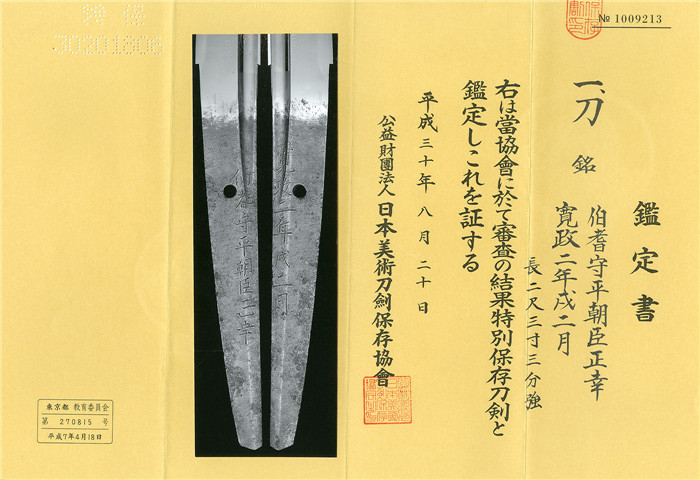 № 1009213
鑑定書
一、刀 銘 伯耆守平朝臣正幸
寛政二年戌二月
長二尺三寸三分強
右は當協會に於て審査の結果特別保存刀剣と
鑑定しこれを証する
平成三十年八月二十日
公益財團法人 日本美術刀劍保存協會
寛政二年戌二月
伯耆守平朝臣正幸
東京都 教育委員会
第 270815 号
平成7年4月18日